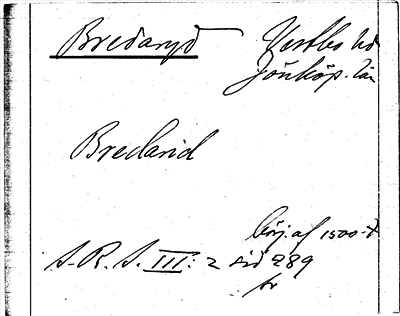 Bredaryd Västbo hd
Jönköp. län
Bredarid
börj. af 1500-t
S. R. S. III: 2 sid 289